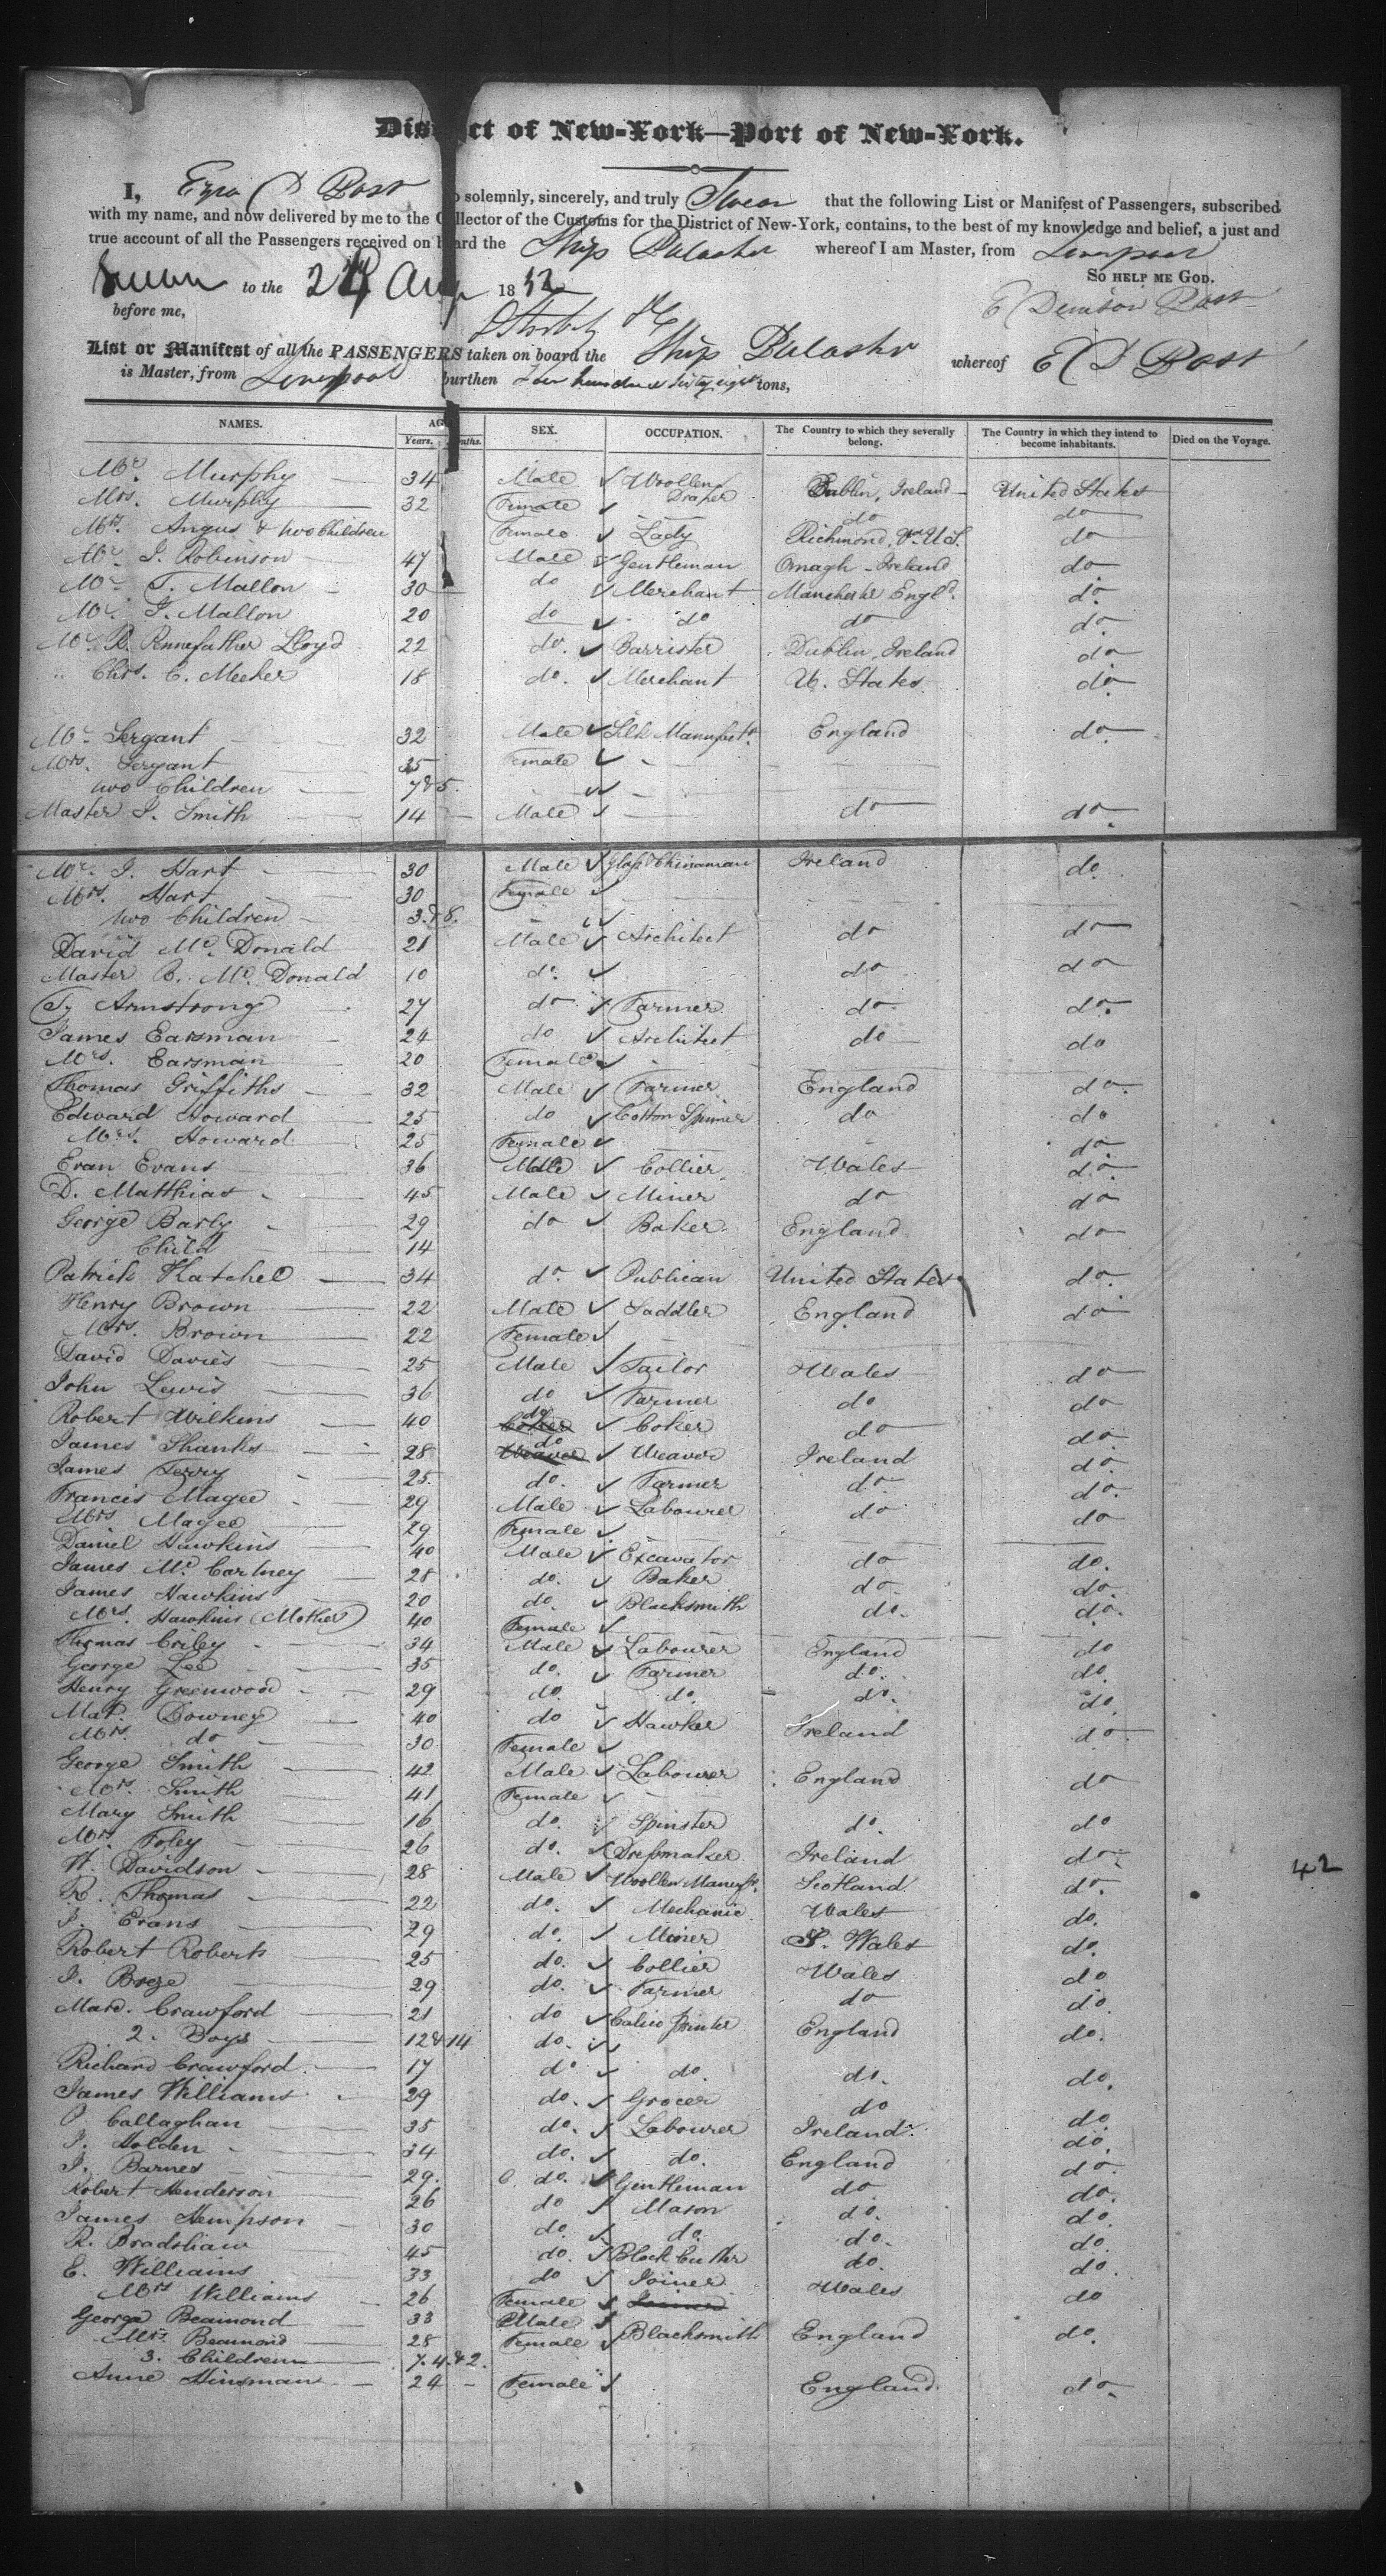 District of New-York—Port of New-York.
I, Ezra D Post do solemnly, sincerely, and truly Swear that the following List or Manifest of Passengers, subscribed
with my name, and now delivered by me to the Collector of the Customs for the District of New-York, contains, to the best of my knowledge and belief, a just and
true account of all the Passengers received on board the Ship whereof I am Master, from Liverpool
Sworn to the 24 Aug 1832 SO HELP ME GOD.
before me, E Denison Post
List or Manifest of all the PASSENGERS taken on board the Ship whereof E D Post
is Master, from Liverpool burthen hundred sixty eight tons,
NAMES. AGE Years. Months. SEX. OCCUPATION. The Country to which they severally belong. The Country in which they intend to become inhabitants. Died on the Voyage.
Mr. Murphy 34 Male Woollen Draper Dublin, Ireland United States
Mrs. Murphy 32 Female do do
Mrs. Angus & two Children Female Lady Richmond, U.S. do
Mr. J. Robinson 47 Male Gentleman Omagh - Ireland do
Mr. T. Mallon 30 do Merchant Manchester Engld. do
Mr. J. Mallon 20 do do do do
Mr. R. Pennefather Lloyd 22 do. Barrister Dublin, Ireland do
" Chrs. C. Meeker 18 do. Merchant U. States do
Mr. Sergant 32 Male Silk Manufctr. England do
Mrs. Sergant 35 Female
two Children 7 & 5.
Master J. Smith 14 Male do do
Mr. J. Hart 30 Male Glass & Chinaman Ireland do
Mrs. Hart 30 Female
two Children 3. & 8.
David Mc. Donald 21 Male Architect do do
Master B. Mc. Donald 10 do. do do
T. Armstrong 27 do Farmer do do
James Earsman 24 do Architect do do
Mrs. Earsman 20 Female
Thomas Griffiths 32 Male Farmer England do
Edward Howard 25 do Cotton Spinner do do
Mrs. Howard 25 Female do
Evan Evans 36 Male Collier Wales do
D. Matthias 45 Male Miner do do
George Barly 29 do Baker England do
Child 14
Patrick Hatchel 34 do. Publican United States do
Henry Brown 22 Male Saddler England do
Mrs. Brown 22 Female
David Davies 25 Male Tailor Wales do
John Lewis 36 do Farmer do do
Robert Wilkins 40 do Coker do do
James Shanks 28 do Weaver Ireland do
James Terry 25 do. Farmer do do
Francis Magee 29 Male Labourer do do
Mrs Magee 29 Female
Daniel Hawkins 40 Male Excavator do do.
James Mc. Cartney 28 do. Baker do do
James Hawkins 20 do. Blacksmith do. do
Mrs. Hawkins (Mother) 40 Female
Thomas Criley 34 Male Labourer England do
George Lee 35 do. Farmer do. do
Henry Greenwood 29 do. do. do. do
Mat. Downey 40 do Hawker Ireland do
Mrs. do 30 Female
George Smith 42 Male Labourer England do
Mrs. Smith 41 Female
Mary Smith 16 do. Spinster do. do
Mrs. Foley 26 do. Dressmaker Ireland do
W. Davidson 28 Male Woollen Manufr. Scotland do. 42
R. Thomas 22 do. Mechanic Wales do.
J. Evans 29 do. Miner S. Wales do.
Robert Roberts 25 do. Collier Wales do
J. 29 do. Farmer do do
Mard. Crawford 21 do Calico Printer England do.
2. Boys 12 & 14 do.
Richard Crawford 17 do do. do. do.
James Williams 29 do. Grocer do do
P. Callaghan 35 do. Labourer Ireland do.
J. Holden 34 do. do. England do.
J. Barnes 29. do. Gentleman do do.
Robert Henderson 26 do Mason do. do.
James Hempson 30 do. do. do. do.
R. Bradshaw 45 do. Block Cutter do. do.
E. Williams 33 do Joiner Wales do
Mrs Williams 26 Female
George Beamond 33 Male Blacksmith England do.
Mrs. Beamond 28 Female
3. Children 7. 4. & 2.
Anne Hinsman 24 Female England do.